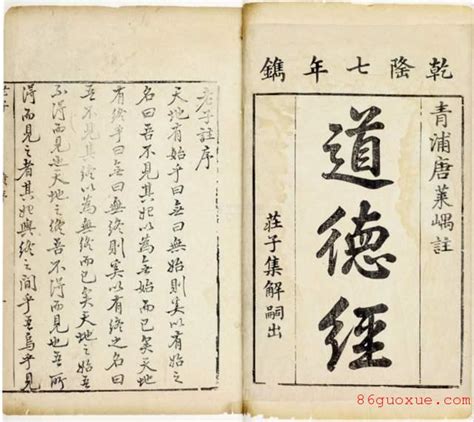 乾隆七年鐫
青浦唐萊嵎註
道德經
莊子集解嗣出
老子註序
天地有始乎曰無也無始則奚以有始之
名曰吾不見其始以為無始而已矣天地
有終乎曰無也無終則奚以有終之名曰
吾不見其終以為無終而已矣天地之始吾
不得而見也天地之終吾不得而見也吾所
得而見之者其始與終之間乎吾烏乎見
86guoxue.com